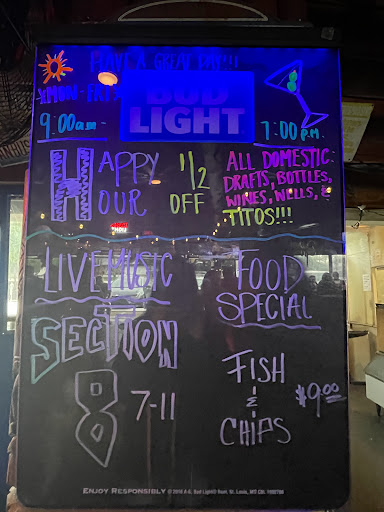 HAVE A GREAT DAY!!!
*MON-FRI*
BUD
LIGHT
9:00 a.m.
7:00 P.M.
HAPPY
HOUR
1/2
OFF
ALL DOMESTIC
DRAFTS, BOTTLES,
WINES, WELLS, &
TITOS!!!
LIVE MUSIC
SECTION
8
7-11
FOOD
SPECIAL
FISH
&
CHIPS
$9.00
ENJOY RESPONSIBLY © 2016 A-B, Bud Light® Beer, St. Louis, MO